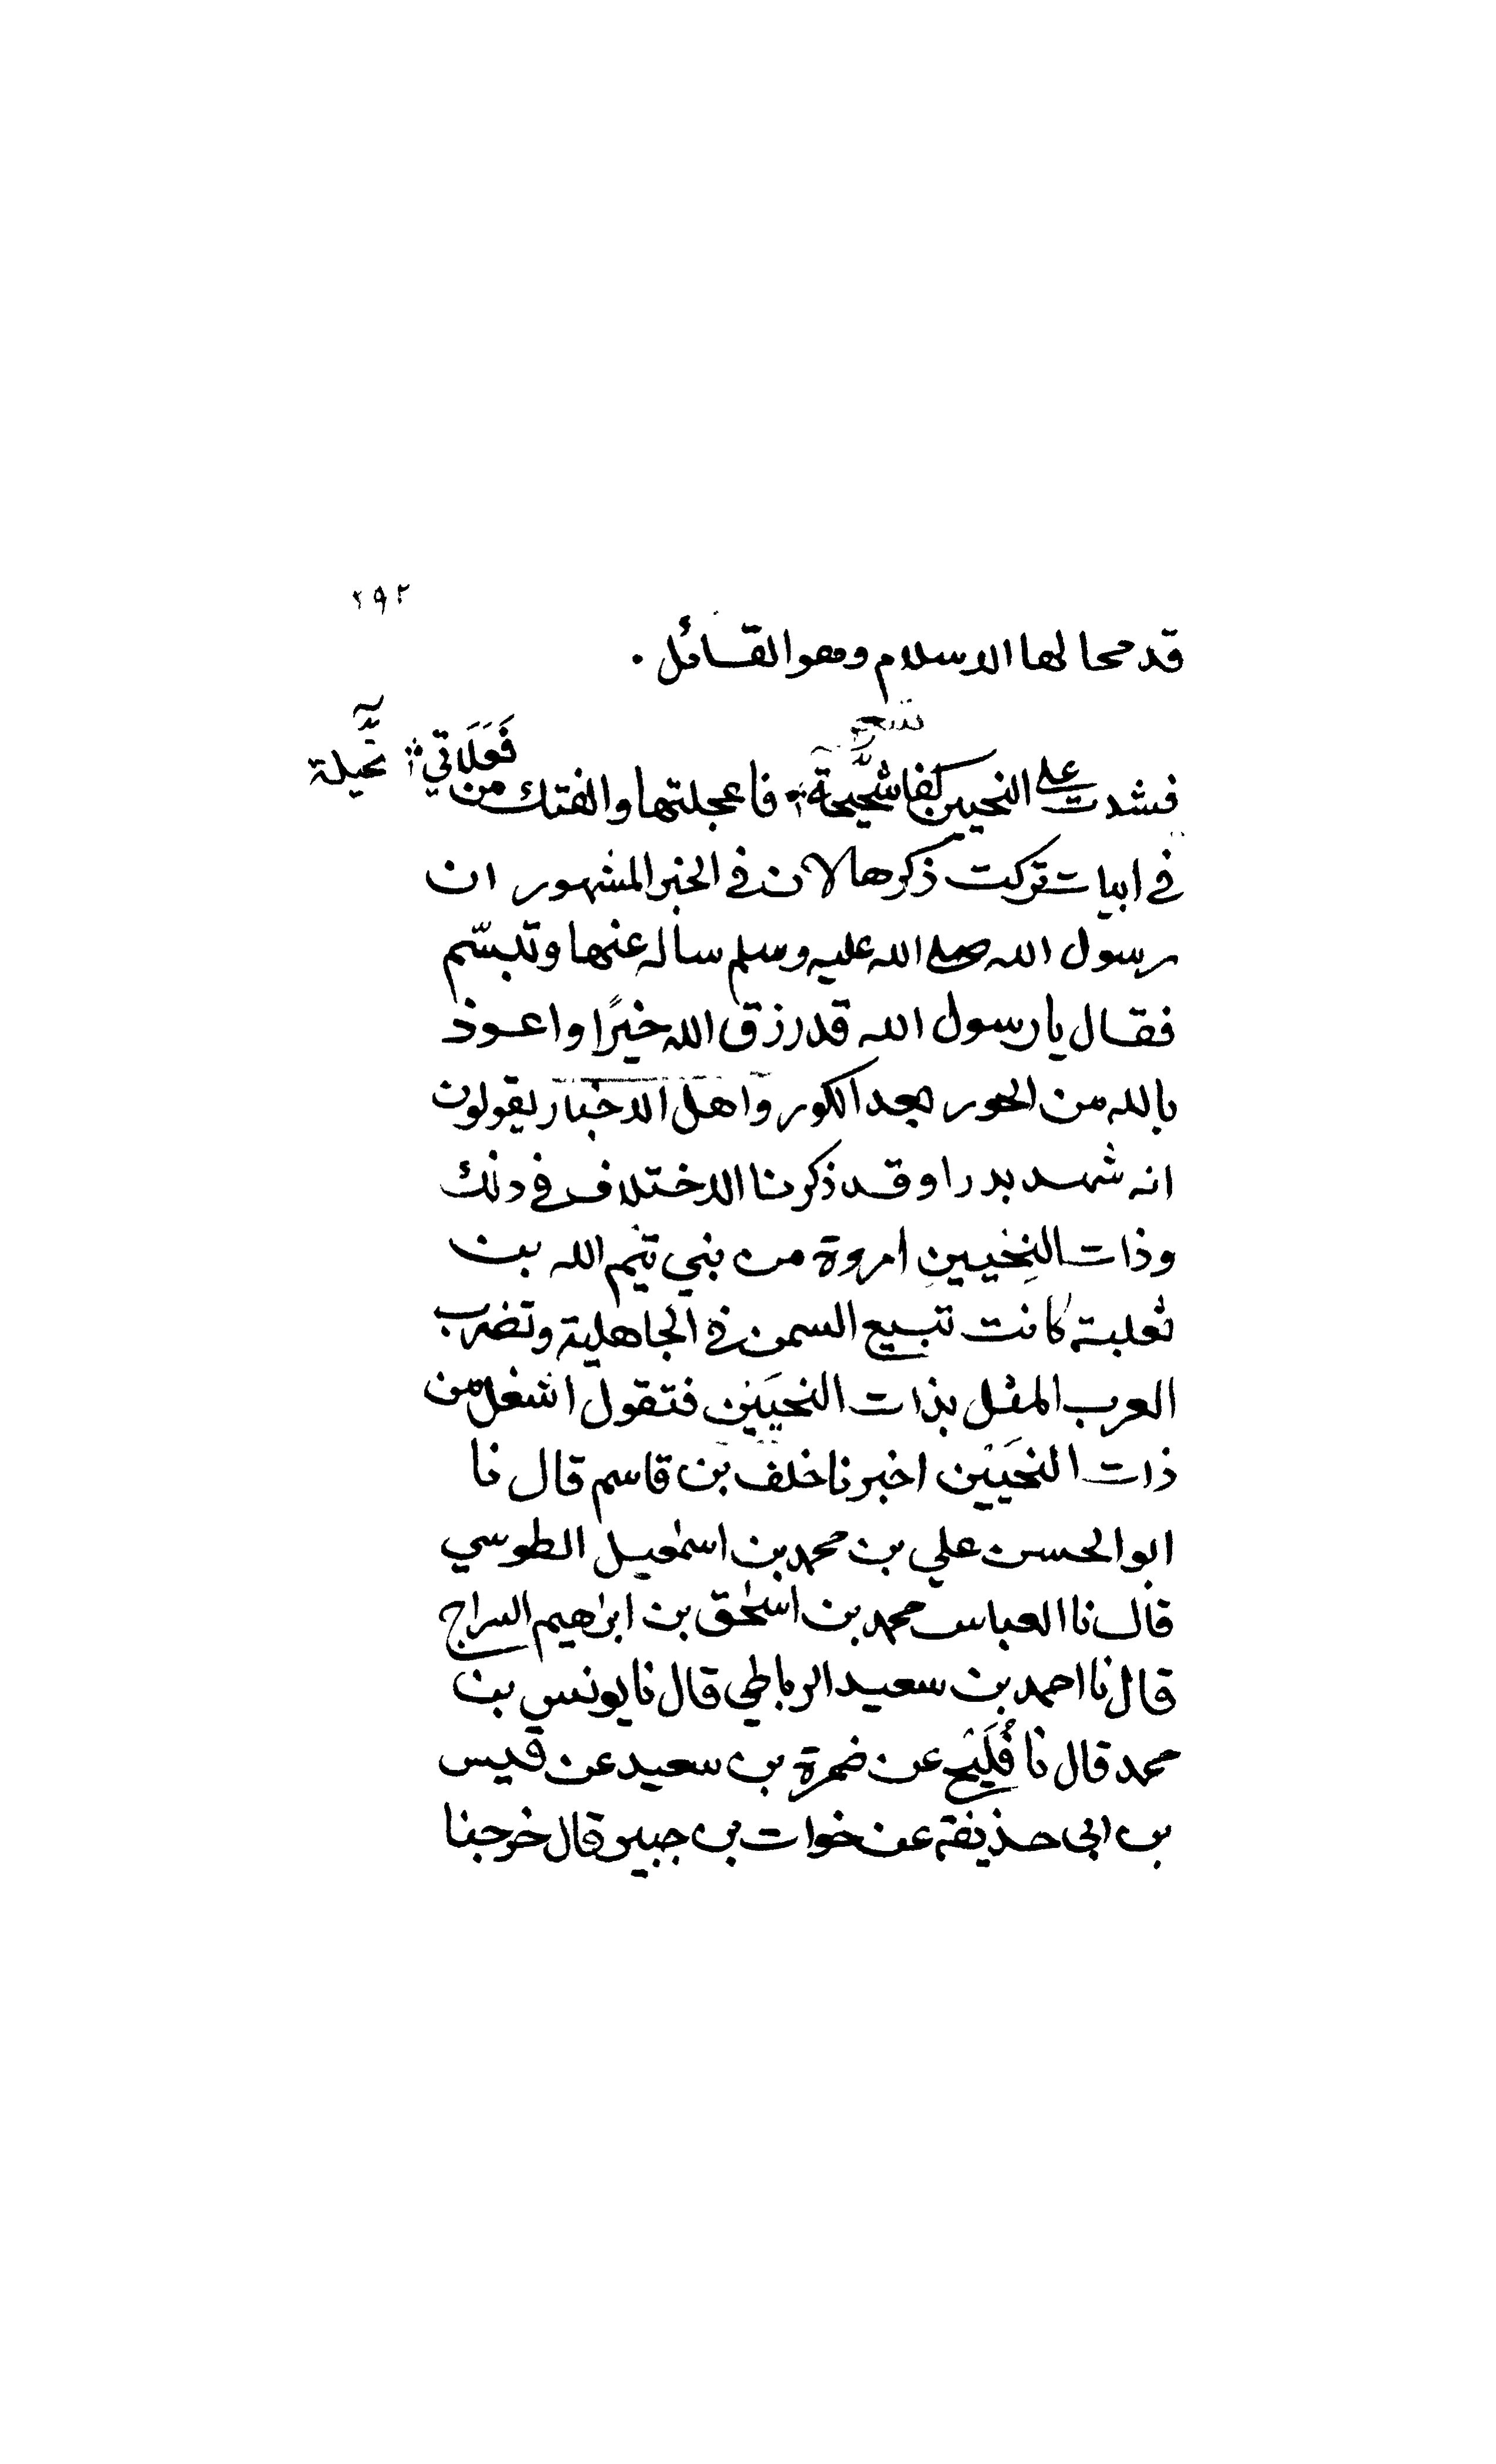 ٢٩٢
قد محا لها الاسلام وهو القائل .
فشدت على النحيين كفا شحيحة فاعجلتها والفتك من فَعَلَاتي نحيلة
في ابيات تركت ذكرها لان في الخبر المشهور ان
رسول الله صلى الله عليه وسلم ساله عنها وتبسّم
فقال يا رسول الله قد رزق الله خيرًا واعوذ
بالله من الحور بعد الكور واهل الاخبار يقولون
انه شهد بدرا وقد ذكرنا الاختلاف في ذلك
وذات النِخيينِ امروة من بني تيم الله بن
ثعلبة كانت تبيع السمن في الجاهلية وتضرب
العرب المثل بذات النحيَين فتقول اشغل من
ذات النحَيَيْن اخبرنا خلف بن قاسم قال نا
ابو الحسن علي بن محمد بن اسمٰعيل الطوسي
قال نا العباس محمد بن اسحٰق بن ابرٰهيم السراج
قال نا احمد بن سعيد الرباطي قال نا يونس بن
محمد قال نا فُلَيْح عن ضمرة بن سعيد عن قيس
بن ابى حذيفة عن خوات بن جبير قال خرجنا